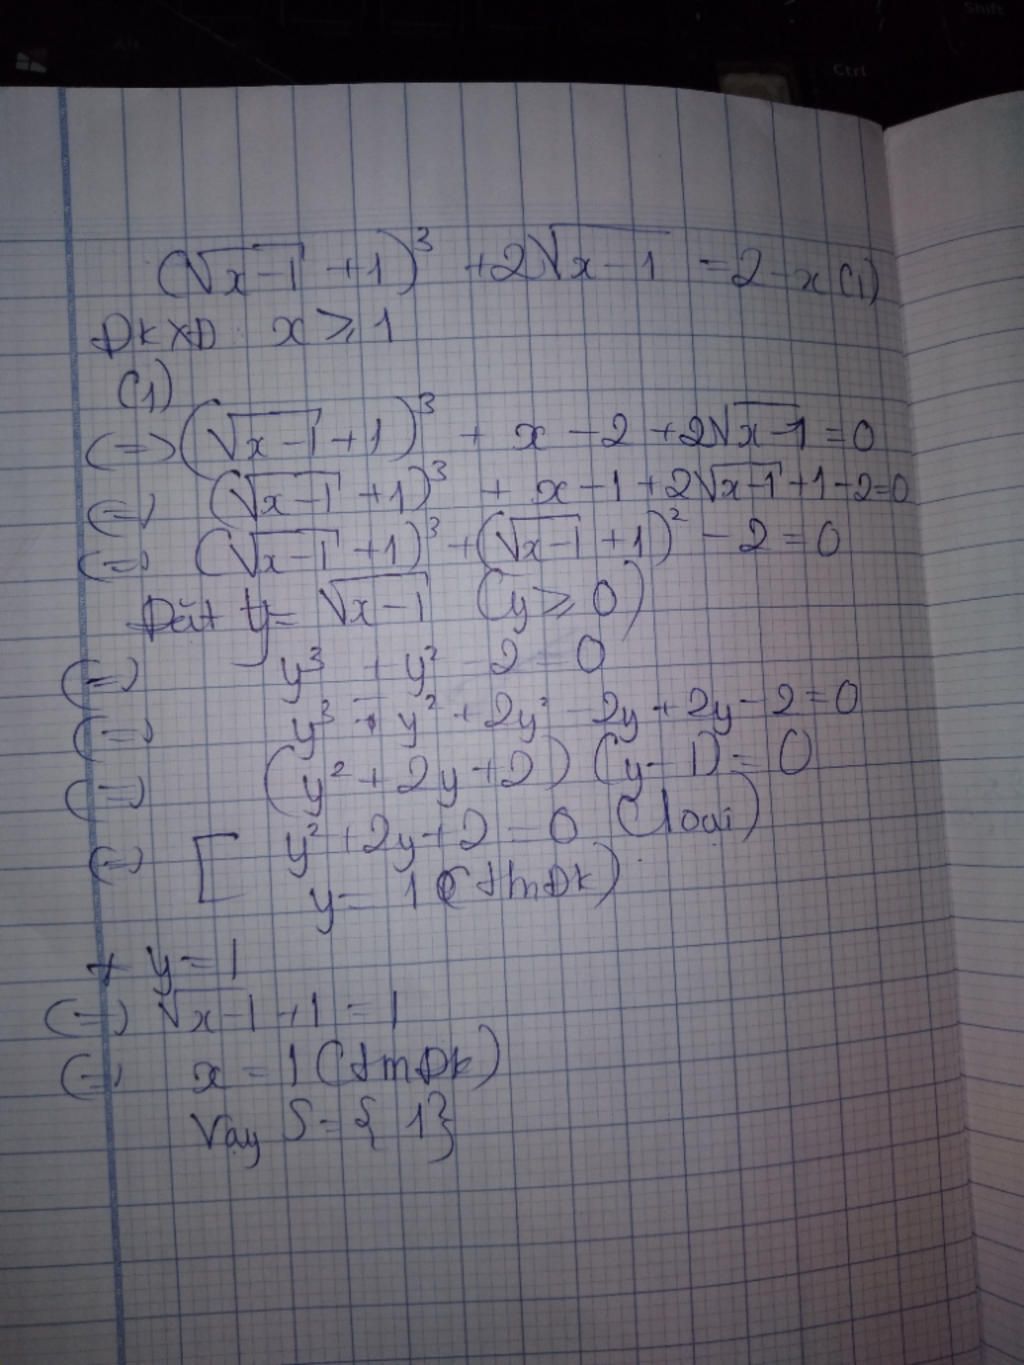 Shift
Alt
Ctrl
(√(x-1) +1)³ +2√(x-1) =2-x (1)
ĐKXĐ: x ≥ 1
(1)
(=) (√(x-1)+1)³ + x - 2 +2√(x-1) =0
(=) (√(x-1) +1)³ + x-1+2√(x-1)+1-2=0
(=) (√(x-1) +1)³ +(√(x-1) +1)² - 2 = 0
Đặt y= √(x-1) (y ≥ 0)
(=) y³ + y² - 2 = 0
(=) y³ - y² + 2y² - 2y + 2y - 2 = 0
(=) (y² + 2y +2) (y-1) = 0
(=) [ y² +2y +2 = 0 (loại)
y= 1 (tmĐk)
+ y=1
(=) √(x-1) +1 = 1
(=) x = 1 (tmĐk)
Vậy S={ 1}